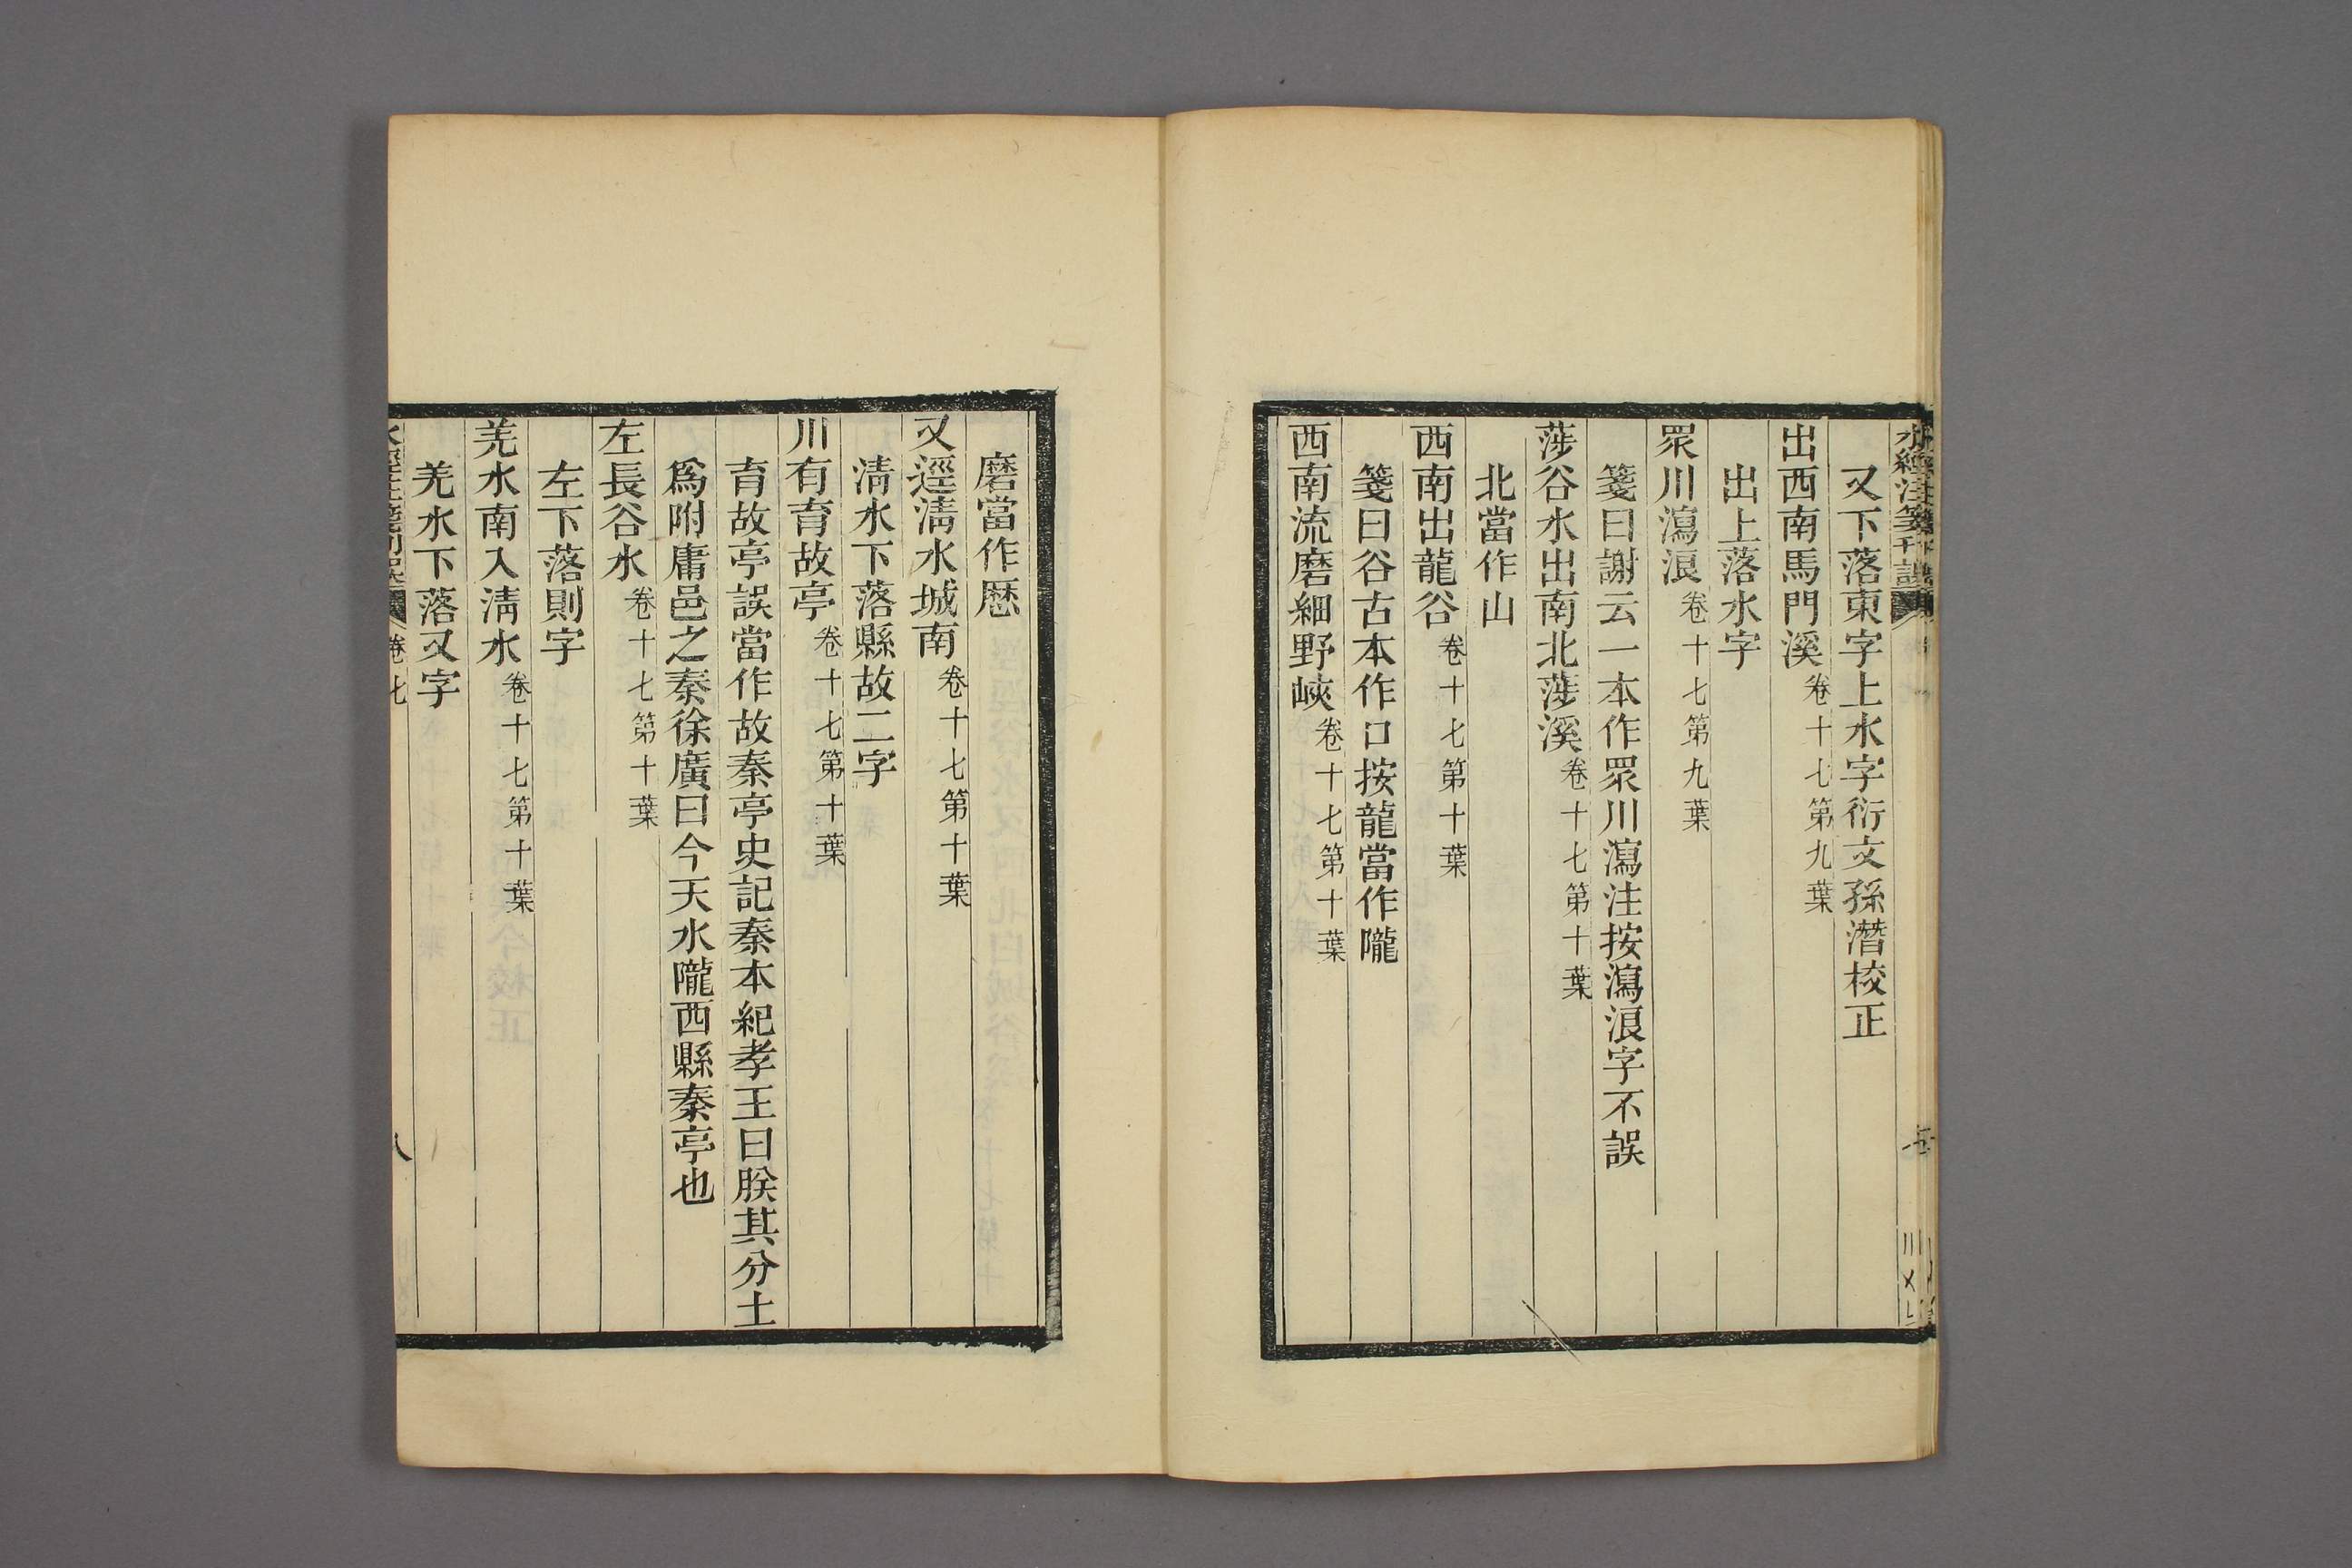 水經注箋刊誤
又下落東字上水字衍文孫潛校正
出西南馬門溪卷十七第九葉
出上落水字
眾川瀉浪卷十七第九葉
箋曰謝云一本作眾川瀉注按瀉浪字不誤
莎谷水出南北莎溪卷十七第十葉
北當作山
西南出龍谷卷十七第十葉
箋曰谷古本作口按龍當作隴
西南流磨細野峽卷十七第十葉
磨當作歷
又逕淸水城南卷十七第十葉
淸水下落縣故二字
川有育故亭卷十七第十葉
育故亭誤當作故秦亭史記秦本紀孝王曰朕其分土
爲附庸邑之秦徐廣曰今天水隴西縣秦亭也
左長谷水卷十七第十葉
左下落則字
羌水南入淸水卷十七第十葉
羌水下落又字
水經注箋刊誤 卷七 八